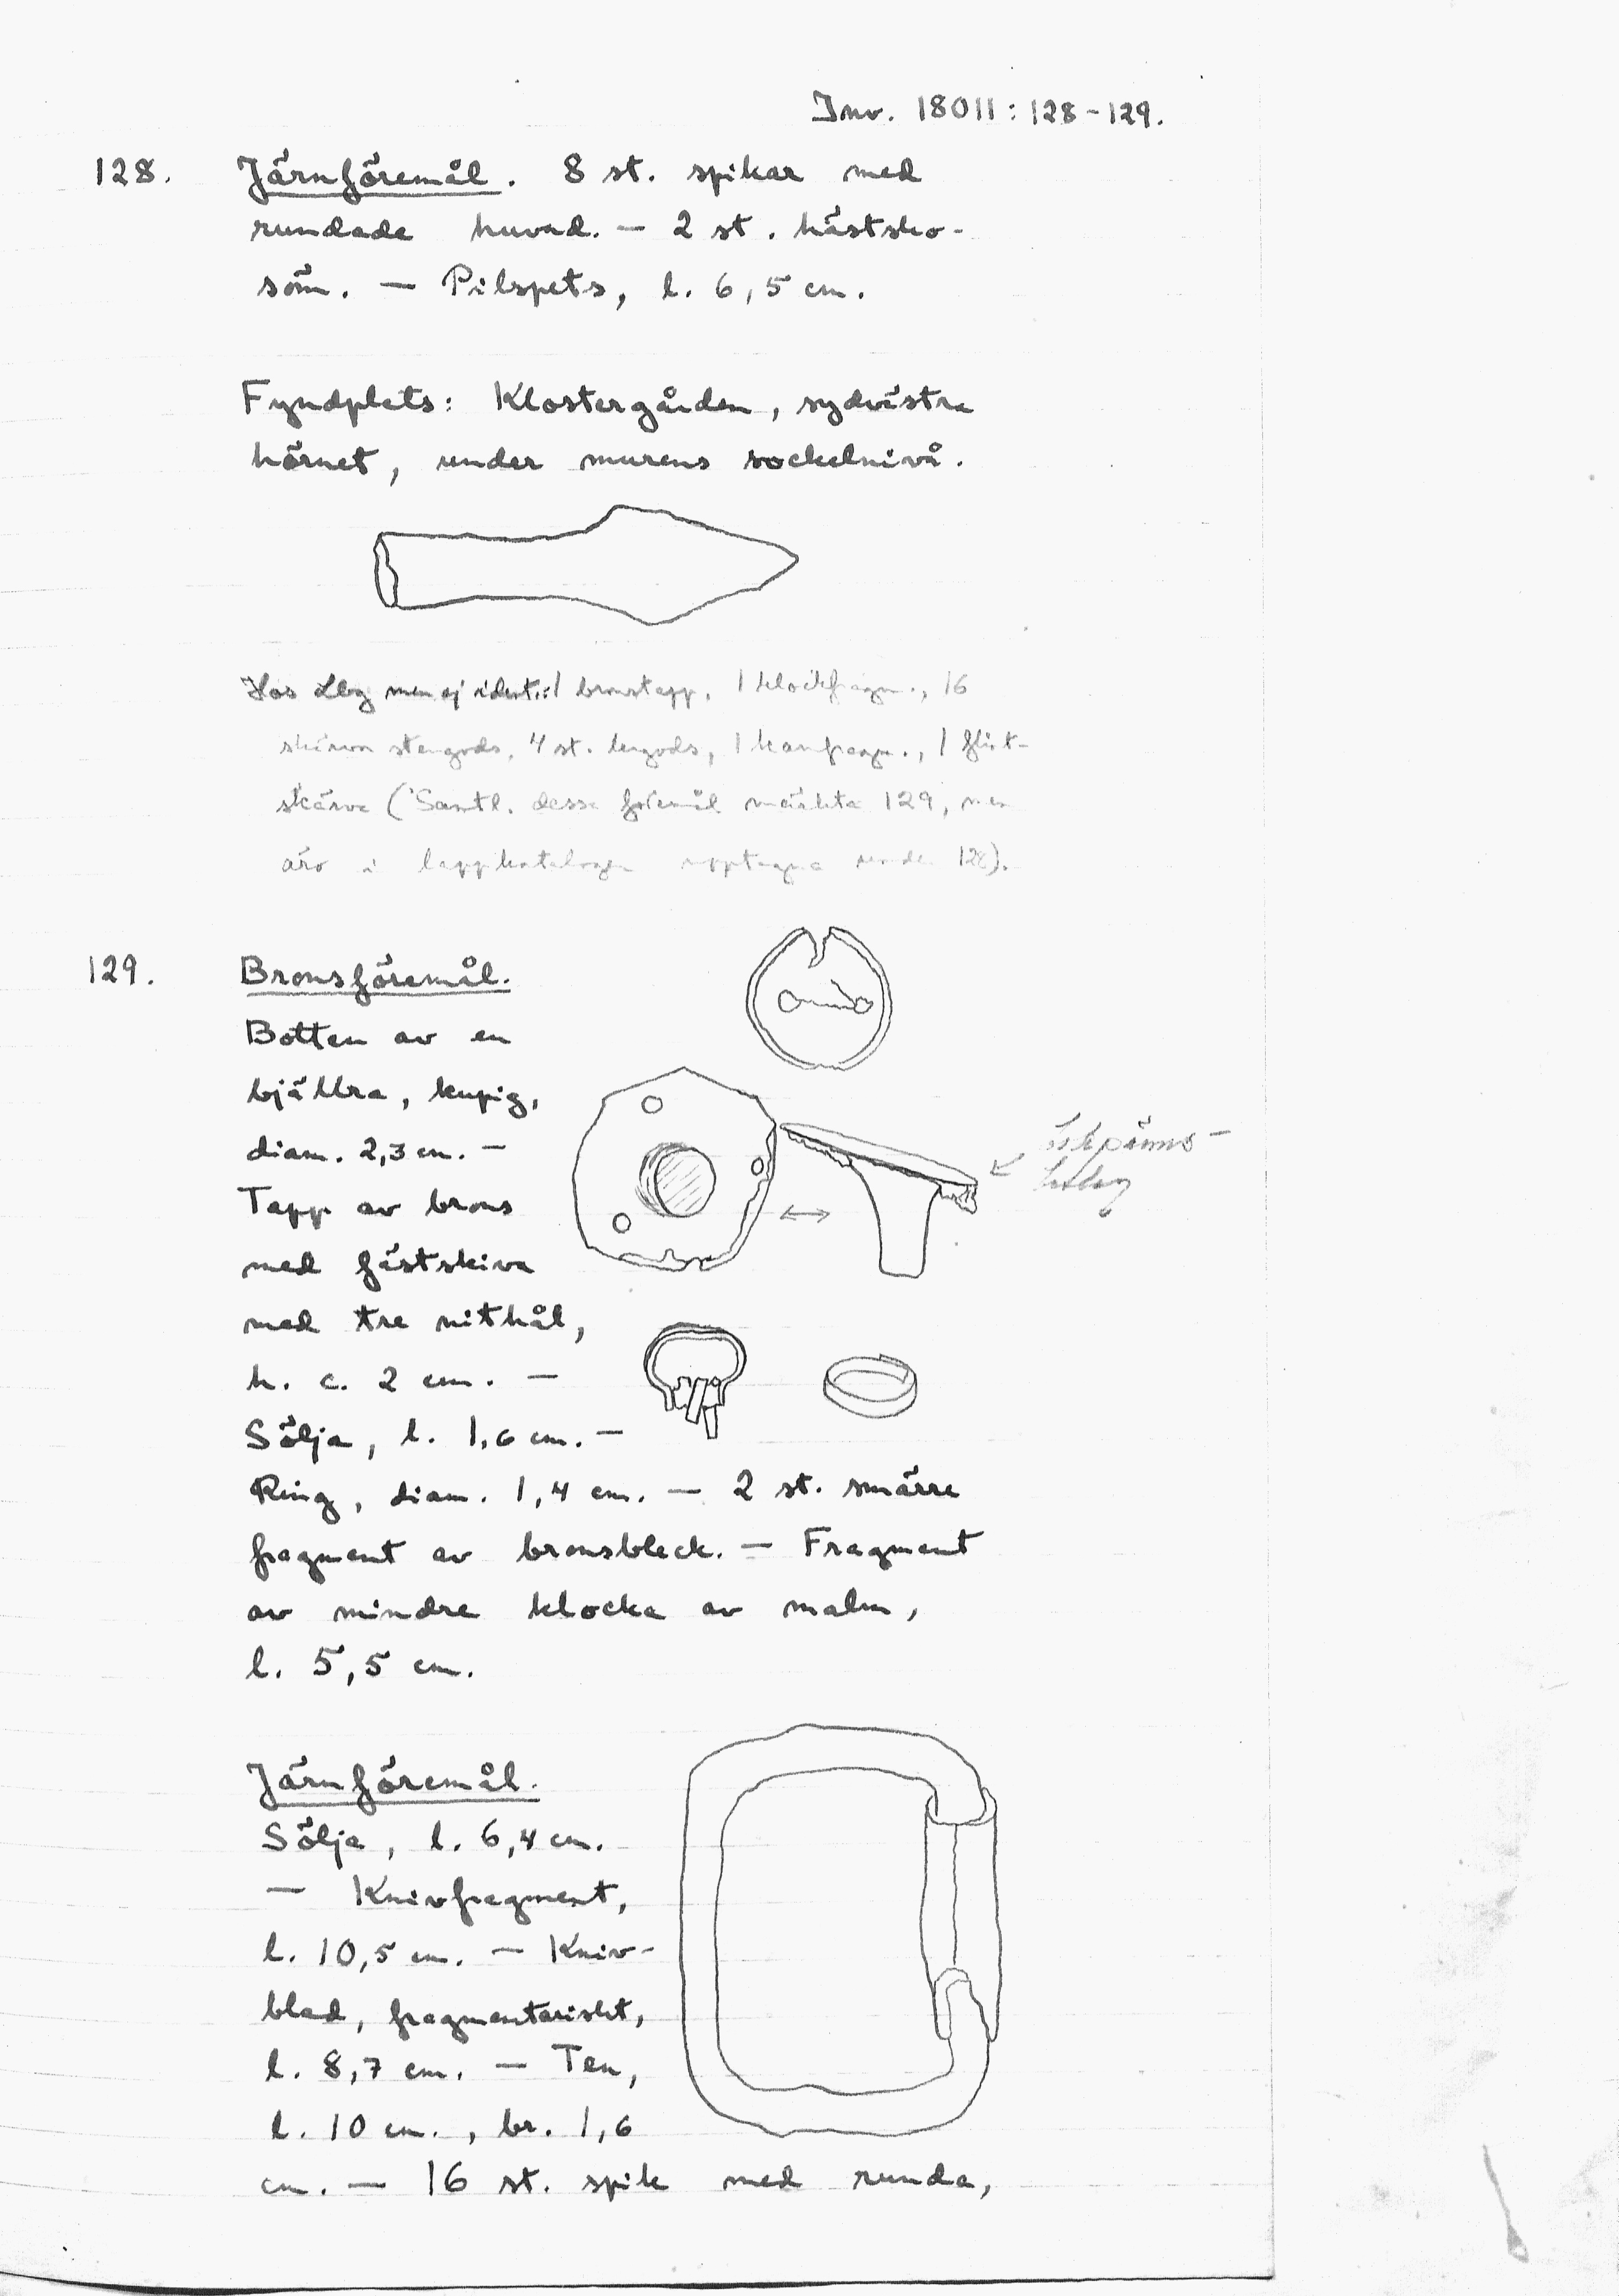 Inv. 18011:128-129.
128. Järnföremål. 8 st. spikar med
rundade huvud. — 2 st. hästsko-
söm. — Pilspets, l. 6,5 cm.
Fyndplats: Klostergården, sydvästra
hörnet, under murens sockelnivå.
Hos Lbg men ej ident.: 1 bronstapp, 1 klockfragm., 16
skärvor stengods, 4 st. lergods, 1 kamfragm., 1 flint-
skärva (Samtl. dessa föremål märkta 129, men
äro i lappkatalogen upptagna under 128).
129. Bronsföremål.
Botten av en
bjällra, kupig,
diam. 2,3 cm. —
Tapp av brons
med fästskiva
med tre nithål,
h. c. 2 cm. —
Sölja, l. 1,6 cm. —
Ring, diam. 1,4 cm. — 2 st. smärre
fragment av bronsbleck. — Fragment
av mindre klocka av malm,
l. 5,5 cm.
Järnföremål.
Sölja, l. 6,4 cm.
— Knivfragment,
l. 10,5 cm. — Kniv-
blad, fragmentariskt,
l. 8,7 cm. — Ten,
l. 10 cm., br. 1,6
cm. — 16 st. spik med runda,